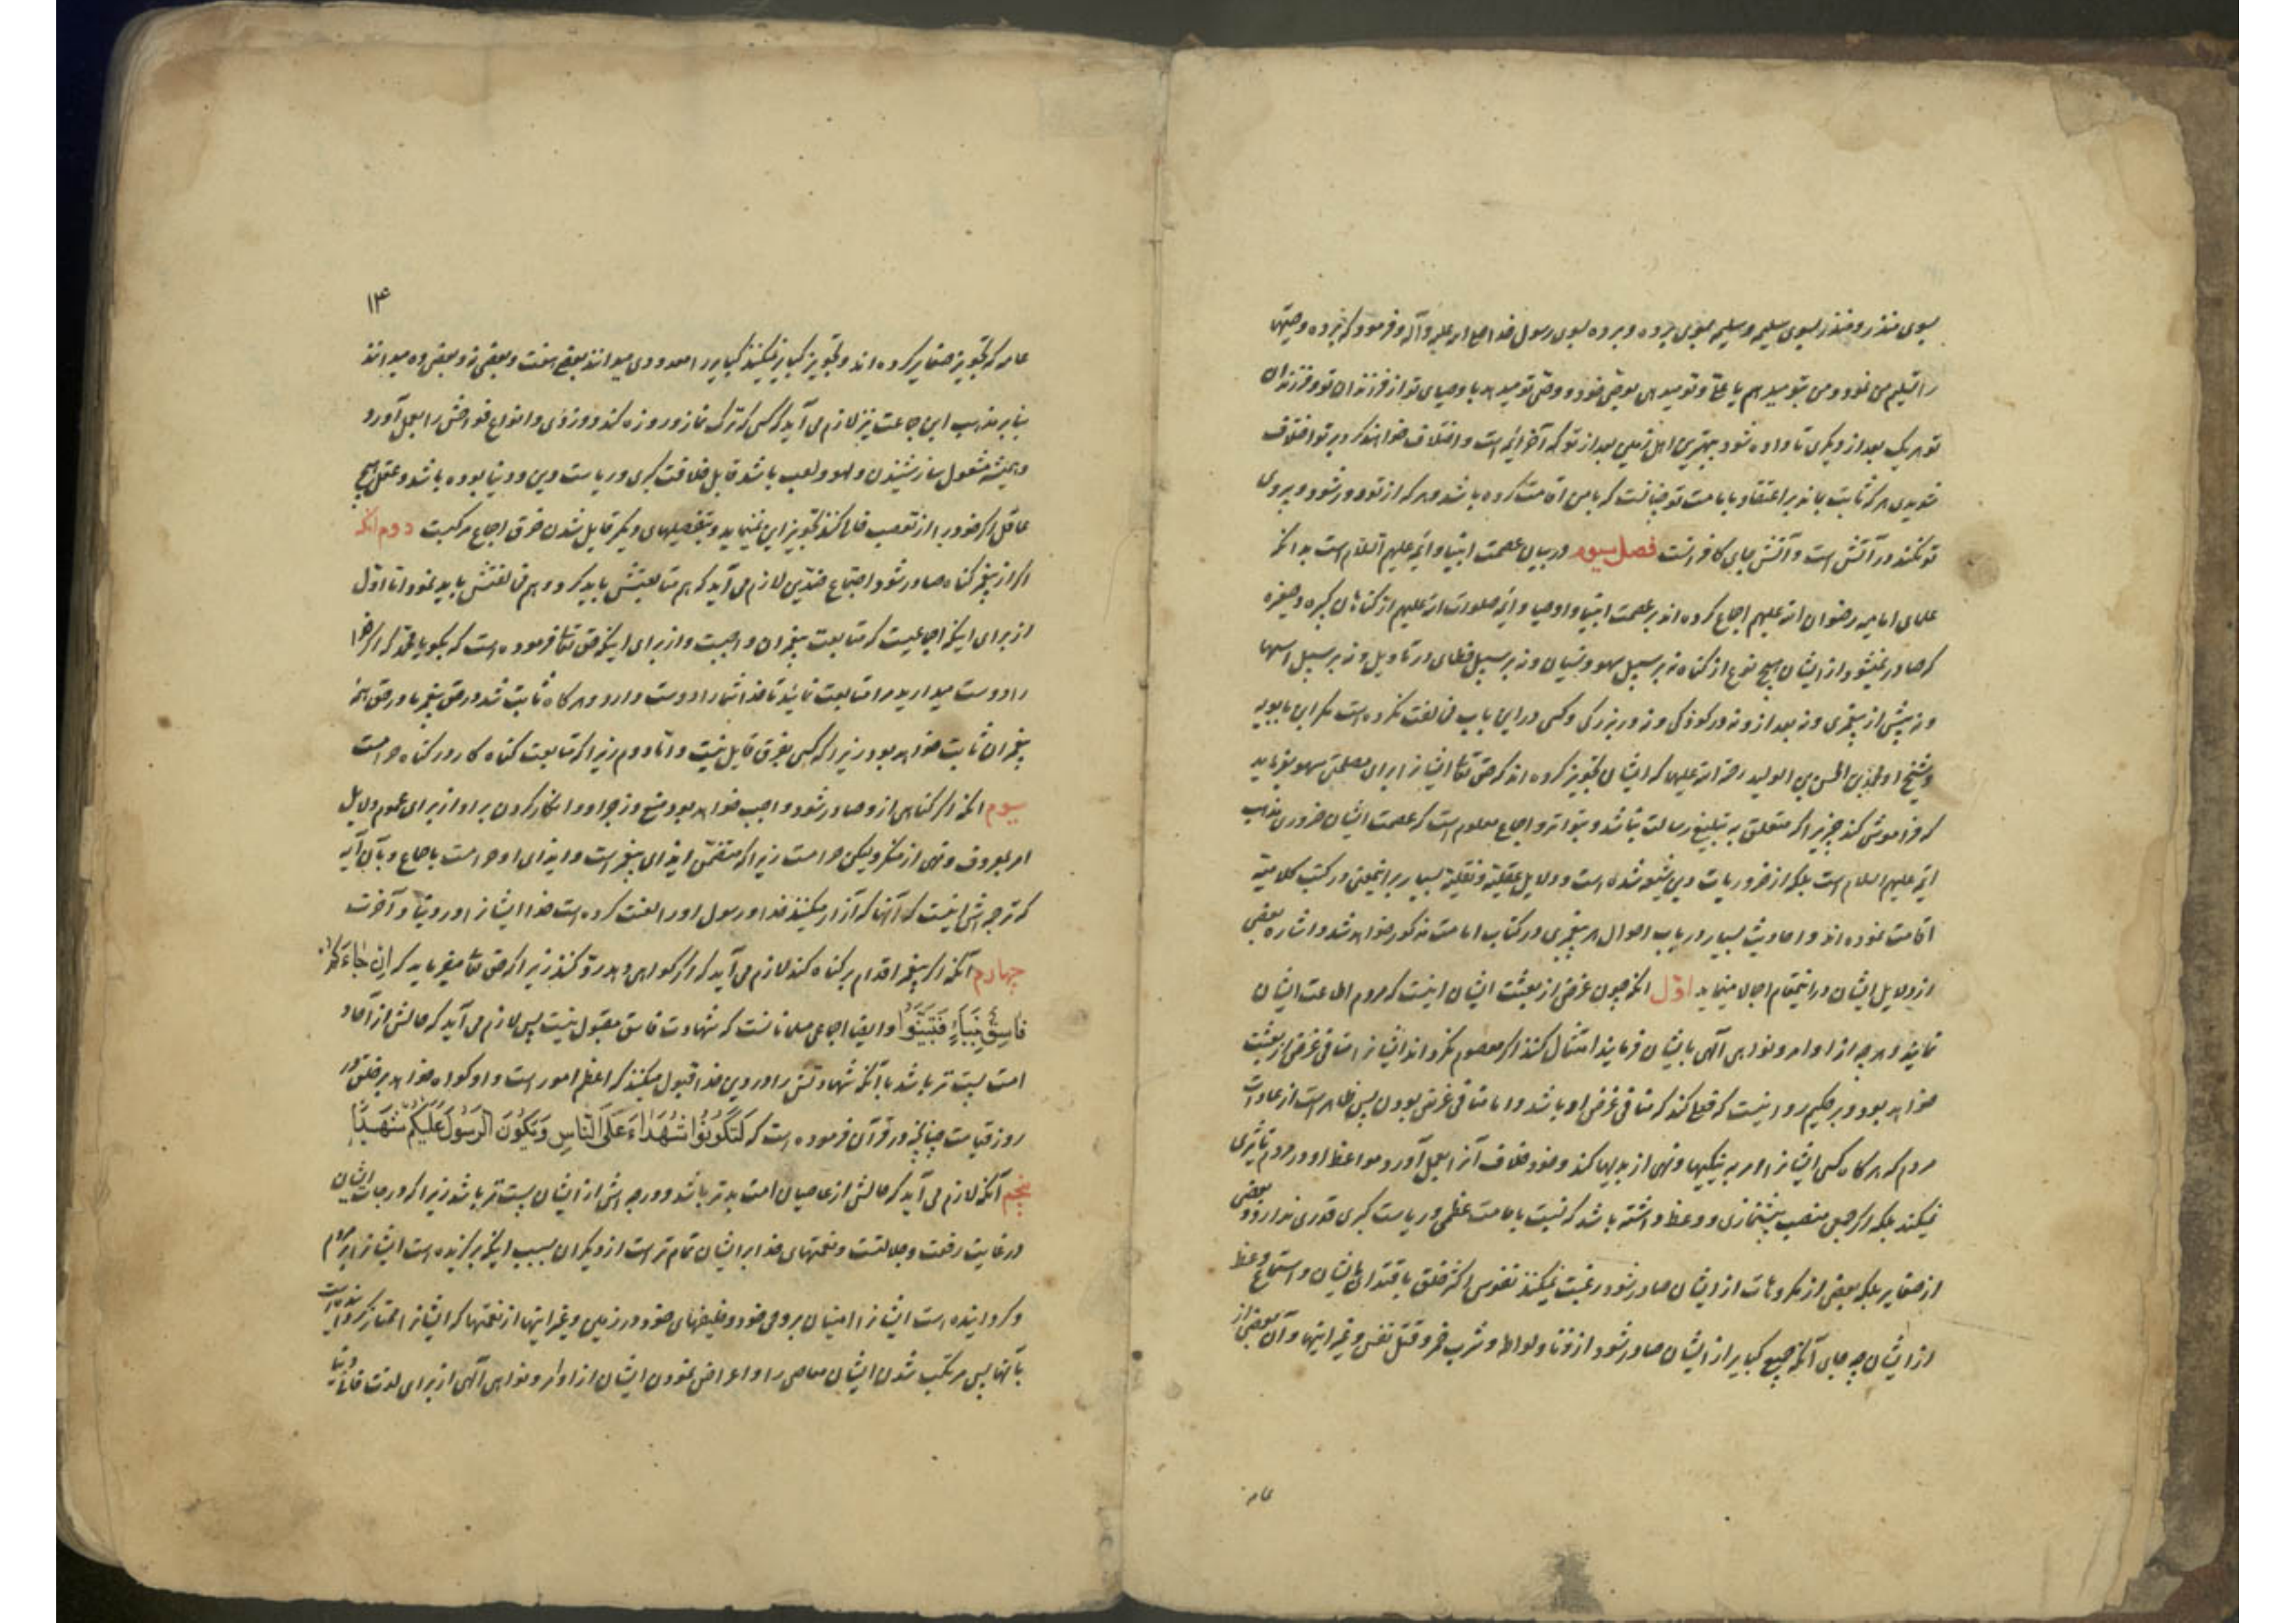 بسوی منذر و منذر بسوی سلیمه و سلیمه بسوی برده و برده بسوی رسول خدا صلی الله علیه وآله و فرمود که برده وصیتها
را تسلیم من نمود و من بتو میدهم یا علی و تو میدهی بوصی خود و وصی تو میدهد باوصیای تو از فرزندان تو و فرزندان
تو هر یک بعد از دیگری تا داده شود ببهترین اهل زمین بعد از تو که آخر ائمه است و اختلاف خواهند کرد بر تو اختلاف
شدیدی هر که ثابت بماند بر اعتقاد بامامت تو چنانست که با من اقامت کرده باشد و هر که از تو دور شود و پیروی
تو نکند در آتش است و آتش جای کافرانست فصل سیوم در بیان عصمت انبیا و ائمه علیهم السلام است بدانکه
علمای امامیه رضوان الله علیهم اجماع کرده اند بر عصمت انبیا و اوصیا و ائمه صلوات الله علیهم از گناهان کبیره و صغیره
که صادر نمیشود از ایشان هیچ نوع از گناه نه بر سبیل سهو و نسیان و نه بر سبیل خطای در تاویل و نه بر سبیل اسها
و نه پیش از پیغمبری و نه بعد از و نه در کودکی و نه در بزرگی و کسی در این باب مخالفت نکرده است مگر ابن بابویه
و شیخ او محمد بن الحسن بن الولید رحمة الله علیهما که ایشان تجویز کرده اند که حق تعالی ایشانرا برای مصلحتی سهو بفرماید
که فراموشی کند چیزیرا که متعلق به تبلیغ رسالت نباشد و بتواتر و اجماع معلوم است که عصمت ایشان ضروری مذهب
ائمه علیهم السلام است بلکه از ضروریات دین شیعه شده است و دلایل عقلیه و نقلیه بسیار بر اینمعنی در کتب کلامیه
اقامت نموده اند و احادیث بسیار در باب احوال هر پیغمبری و در کتاب امامت مذکور خواهد شد و اشاره ببعضی
از دلایل ایشان در اینمقام اجمالا مینماید اول آنکه چون غرض از بعثت ایشان اینست که مردم اطاعت ایشان
نمایند و هر چه از اوامر و نواهی الهی بایشان فرمایند امتثال کنند اگر معصوم نگرداند ایشانرا منافی غرض از بعثت
خواهد بود و بر حکیم روا نیست که فعلی کند که منافی غرض او باشد و اما منافی غرض بودن پس ظاهر است از عادات
مردم که هر گاه کسی ایشانرا امر به نیکیها و نهی از بدیها کند و خود خلاف آنرا بعمل آورد مواعظ او در مردم تاثیری
نمیکند بلکه اگر کسی منصب پیشنمازی و وعظ داشته باشد که نسبت بامامت عظمی و ریاست کبری قدری ندارد و بعضی
از صغایر بلکه بعضی از مکروهات از ایشان صادر شود رغبت نمیکند نفوس اکثر خلق باقتدای بایشان و استماع وعظ
از ایشان چه جای آنکه جمیع کبایر از ایشان صادر شود از زنا و لواط و شرب خمر و قتل نفس و غیر اینها و آن بعضی از
عامه
۱۳
عامه که تجویز صغایر کرده اند و تجویز کبایر نمیکنند کبایر را معدودی میدانند بعضی هفت و بعضی نه و بعضی ده میدانند
بنابر مذهب این جماعت نیز لازم می آید که کسی که ترک نماز و روزه کند و دزدی و انواع فواحش را بعمل آورد
و همیشه مشغول ساز شنیدن و لهو و لعب باشد قابل خلافت کبری و ریاست دین و دنیا بوده باشد و عقل هیچ
عاقل اگر خود را از تعصب خالی کند تجویز این نمینماید و بتفصیلهای دیگر قایل شدن خرق اجماع مرکبست دوم آنکه
اگر از پیغمبر گناه صادر شود اجتماع ضدین لازم می آید که هم متابعتش باید کرد و هم مخالفتش باید نمود اما اول
از برای اینکه اجماعیست که متابعت پیغمبران واجبست و از برای اینکه حق تعالی فرموده است که بگو یا محمد که اگر خدا
را دوست میدارید مرا متابعت نمائید تا خدا شما را دوست دارد و هر گاه ثابت شد در حق پیغمبر ما در حق همه
پیغمبران ثابت خواهد بود زیرا که کسی بفرق قایل نیست و اما دوم زیرا که متابعت گناه کار در گناه حرامست
سیوم آنکه اگر گناهی از و صادر شود واجب خواهد بود منع و زجر او و انکار کردن بر او از برای عموم دلایل
امر بمعروف و نهی از منکر ولیکن حرامست زیرا که متضمن ایذای پیغمبر است و ایذای او حرامست باجماع و بآن آیه
که ترجمه اش اینست که آنها که آزار میکنند خدا و رسول او را لعنت کرده است خدا ایشانرا در دنیا و آخرت
چهارم آنکه اگر پیغمبر اقدام بر گناه کند لازم می آید که اگر گواهی دهد رد کنند زیرا که حق تعالی میفرماید که اِن جٰاءَکُم
فاسِقٌ بِنَبَاءٍ فَتَبَیَّنُوا و ایضا اجماعی مسلمانانست که شهادت فاسق مقبول نیست پس لازم می آید که حالش از آحاد
امت پست تر باشد با آنکه شهادتش را در دین خدا قبول میکنند که اعظم امور است و او گواه خواهد بر خلق در
روز قیامت چنانچه در قرآن فرموده است که لِتَکُونُوا شُهَدٰاءَ عَلَی النّاسِ وَیَکُونَ الرَّسُولُ عَلَیْکُمْ شَهِیدًا
پنجم آنکه لازم می آید که حالش از عاصیان امت بدتر باشد و درجه اش از ایشان پست تر باشد زیرا که درجات ایشان
در غایت رفعت و جلالتست و نعمتهای خدا بر ایشان تمام تر است از دیگران بسبب اینکه برگزیده است ایشانرا بر مردم
و گردانیده است ایشانرا امینان بر وحی خود و خلیفهای خود در زمین و غیر اینها از نعمتها که ایشانرا ممتاز گردانیده است
بآنها پس مرتکب شدن ایشان معاصی را و اعراض نمودن ایشان از اوامر و نواهی الهی از برای لذت فانی دنیا